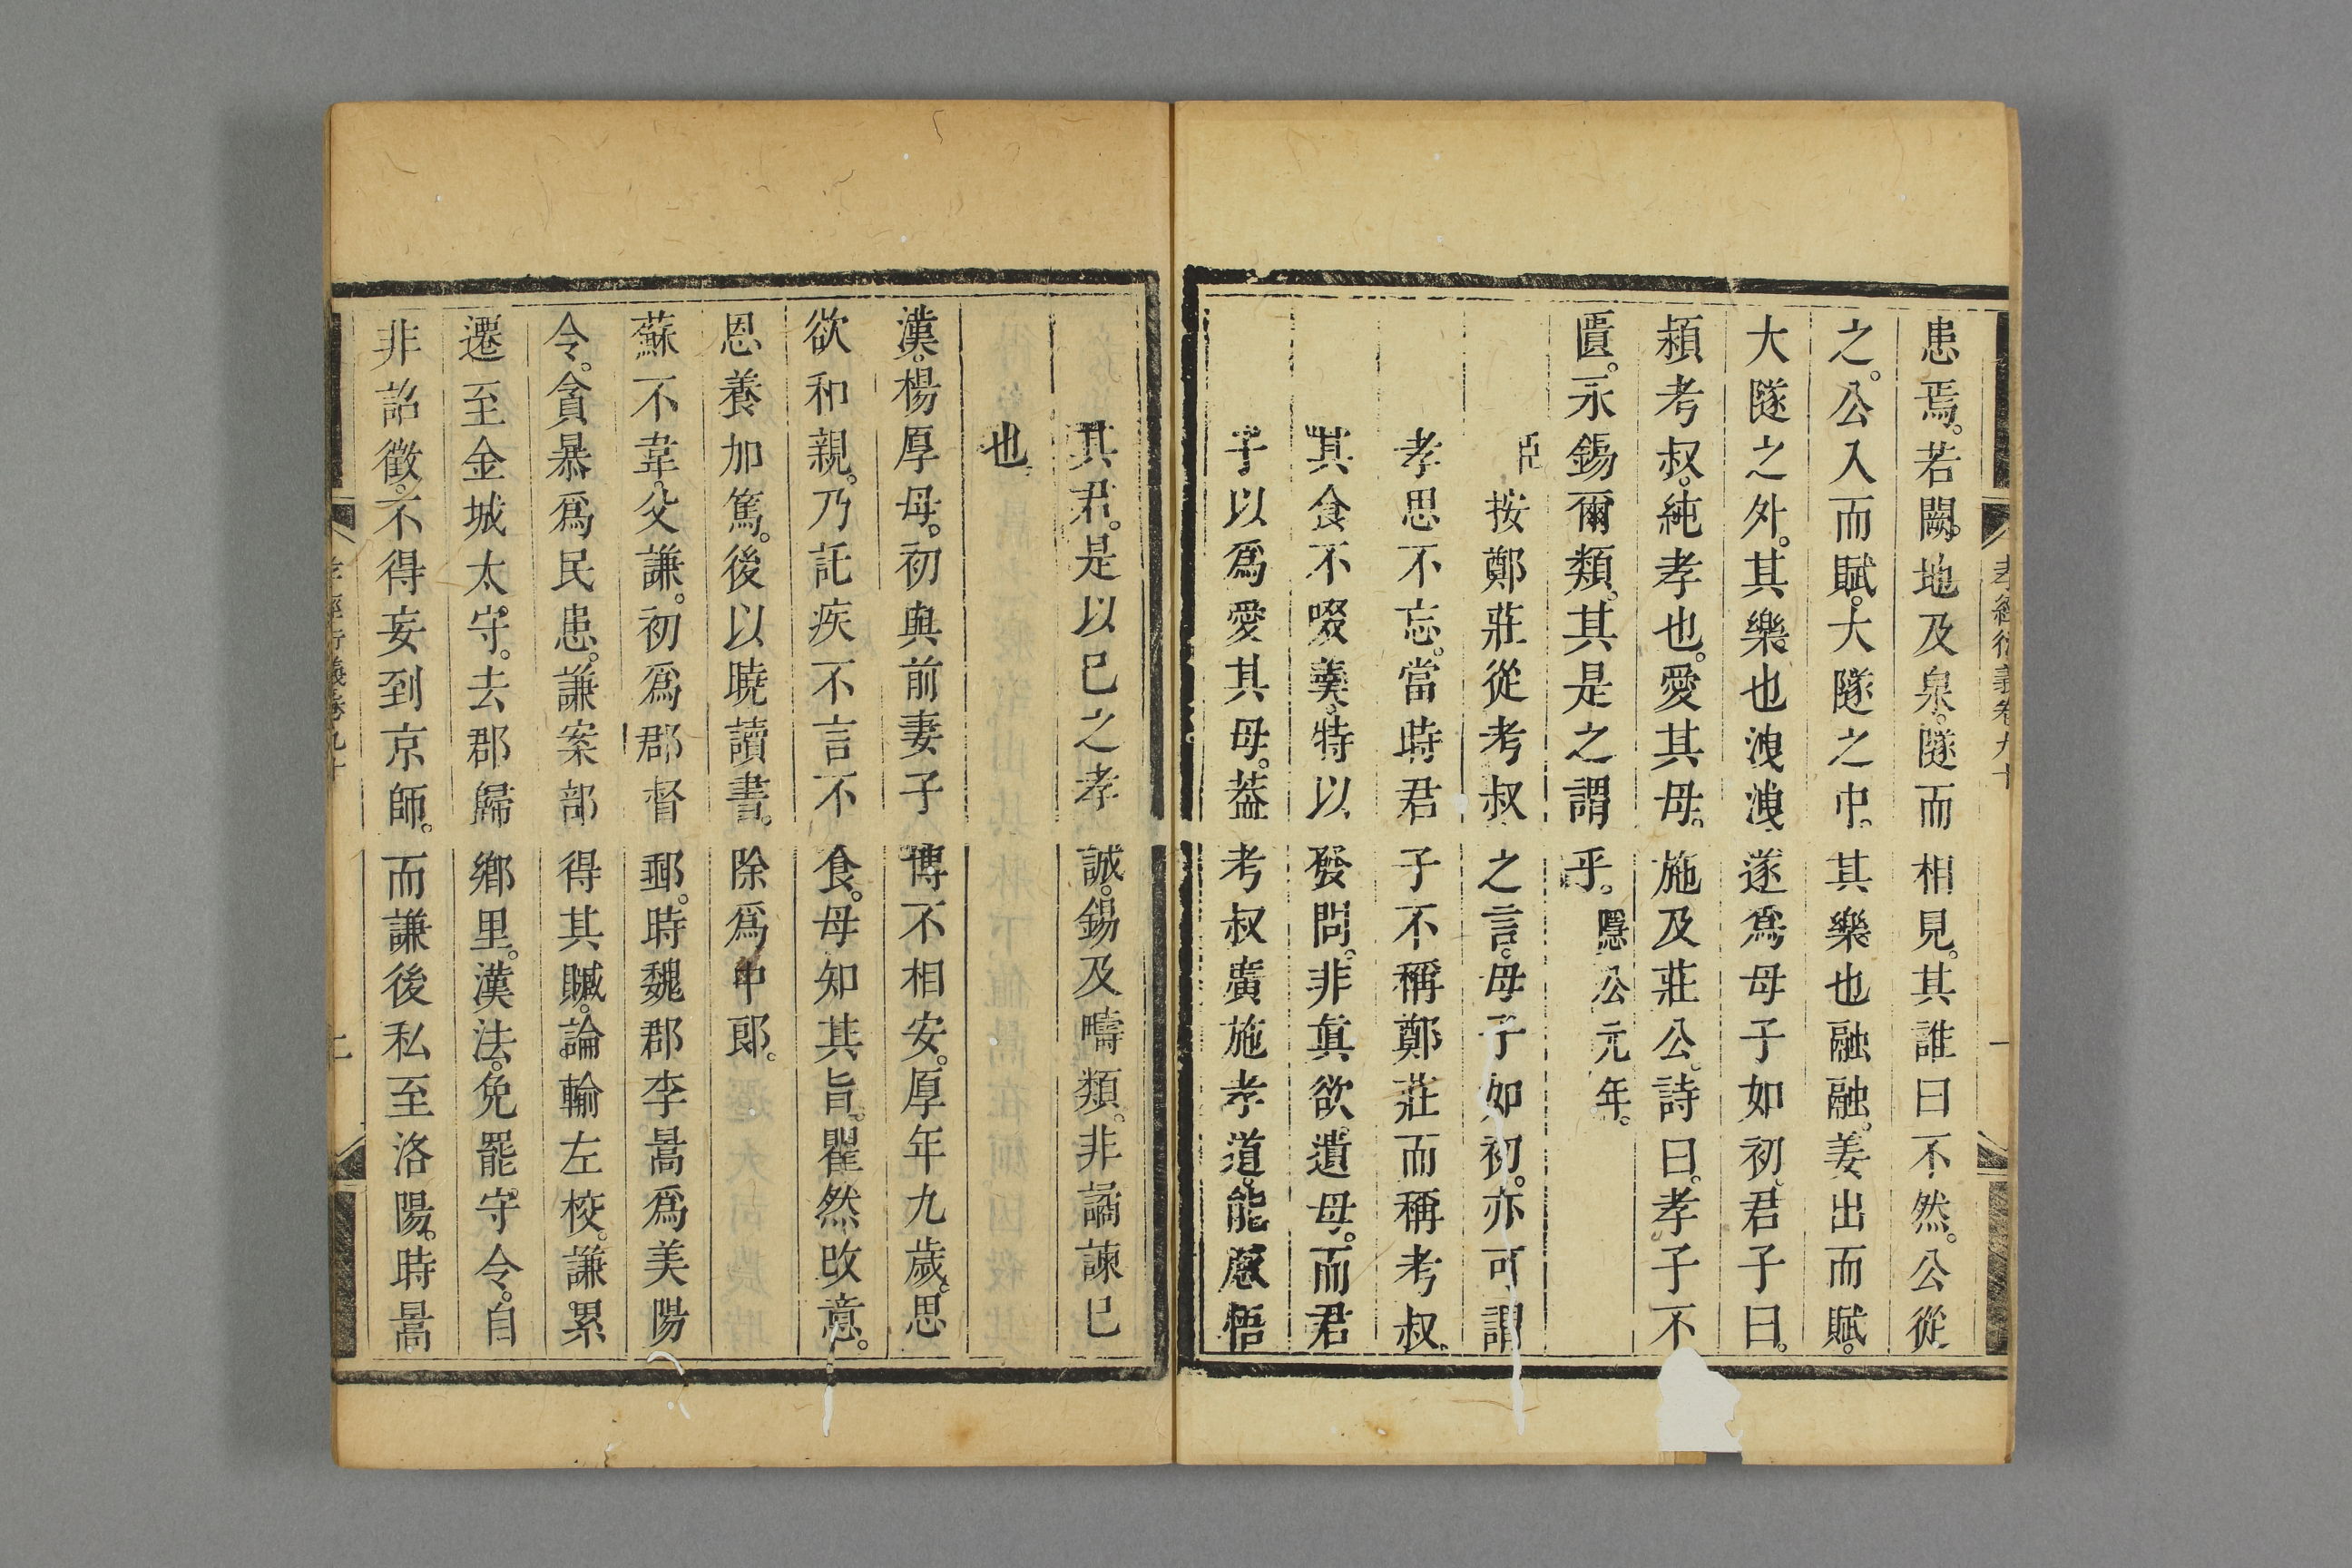 孝經衍義卷九十
患焉。若闕。地及泉。隧而相見。其誰曰不然。公從
之。公入而賦。大隧之中。其樂也融融。姜出而賦。
大隧之外。其樂也洩洩。遂爲母子如初。君子曰。
潁考叔。純孝也。愛其母。施及莊公。詩曰。孝子不
匱。永錫爾類。其是之謂乎。隱公元年。
臣按鄭莊從考叔之言。母子如初。亦可謂
孝思不忘。當時君子不稱鄭莊而稱考叔。
其食不啜羹。特以發問。非眞欲遺母。而君
子以爲愛其母。蓋考叔廣施孝道。能感悟
其君。是以已之孝誠。錫及疇類。非譎諫已
也。
漢。楊厚母。初與前妻子博不相安。厚年九歲。思
欲和親。乃託疾不言不食。母知其旨。瞿然改意。
恩養加篤。後以曉讀書。除爲中郞。
蘇不韋。父謙。初爲郡督郵。時魏郡李暠爲美陽
令。貪暴爲民患。謙案部得其贓。論輸左校。謙累
遷至金城太守。去郡歸鄉里。漢法。免罷守令。自
非詔徵。不得妄到京師。而謙後私至洛陽。時暠